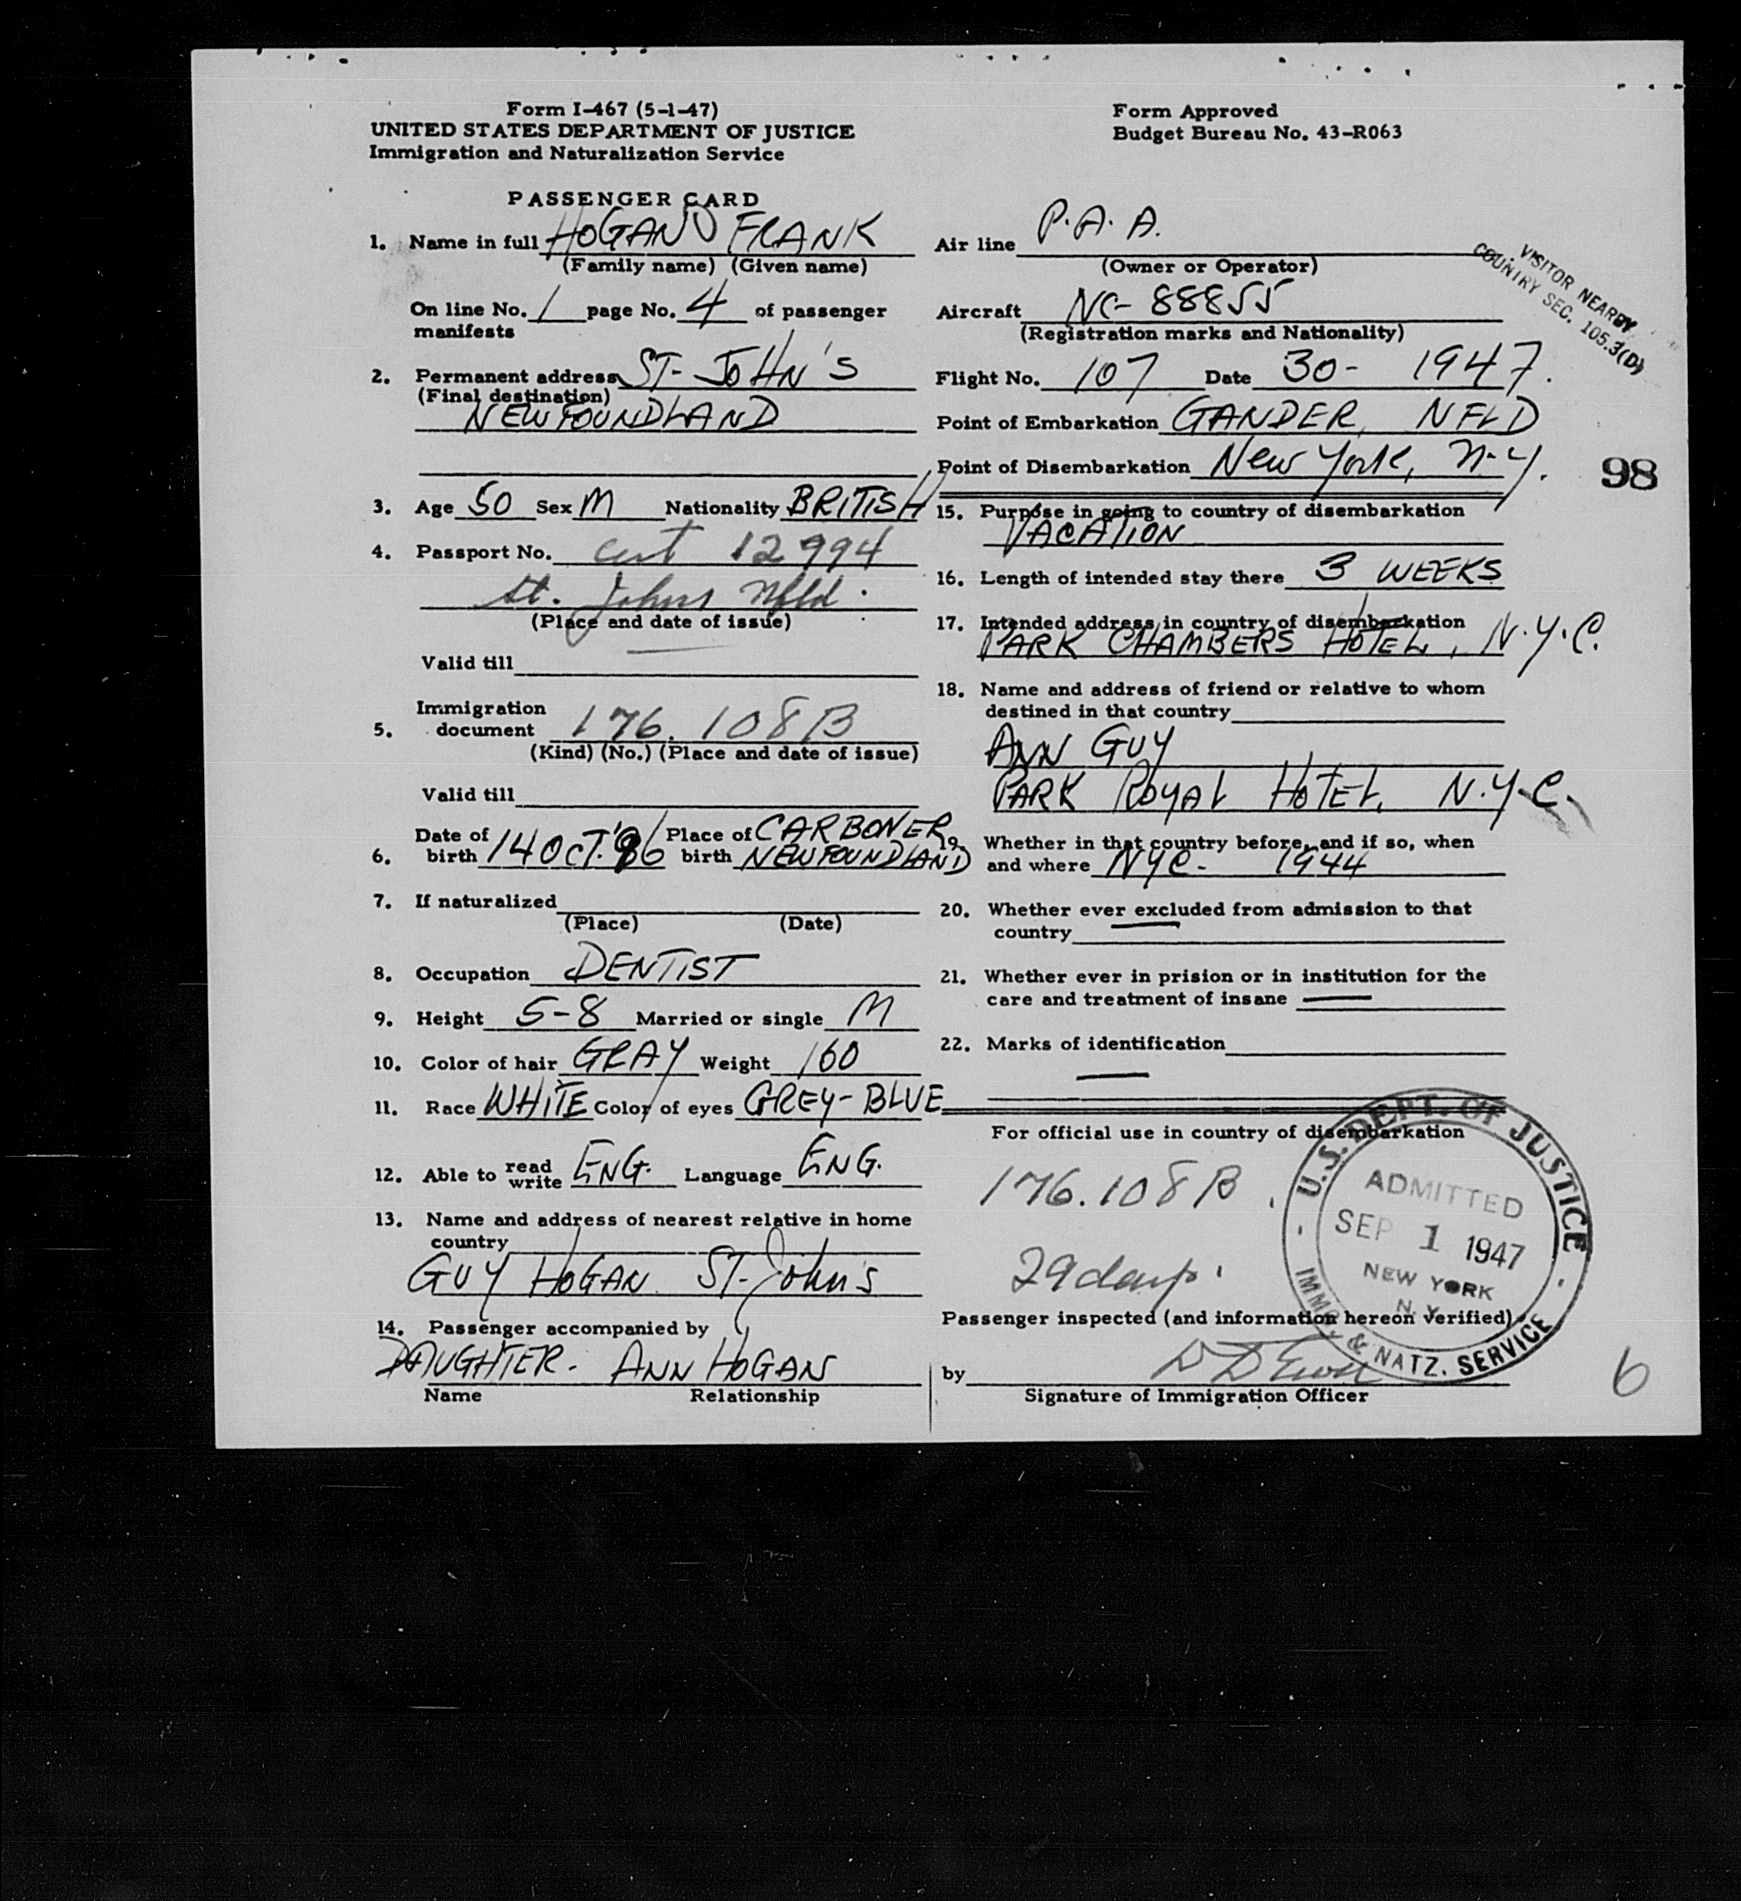 Form I-467 (5-1-47)
UNITED STATES DEPARTMENT OF JUSTICE
Immigration and Naturalization Service
Form Approved
Budget Bureau No. 43-R063
PASSENGER CARD
1. Name in full HOGAN FRANK
(Family name) (Given name)
On line No. 1 page No. 4 of passenger
manifests
2. Permanent address ST- JOHN'S
(Final destination)
NEWFOUNDLAND
3. Age 50 Sex M Nationality BRITISH
4. Passport No. Cert 12994
St. Johns Nfld.
(Place and date of issue)
Valid till
5. Immigration
document 176.108B
(Kind) (No.) (Place and date of issue)
Valid till
6. Date of birth 14 OCT. '96 Place of birth CARBONER
NEWFOUNDLAND
7. If naturalized
(Place) (Date)
8. Occupation DENTIST
9. Height 5-8 Married or single M
10. Color of hair GRAY Weight 160
11. Race WHITE Color of eyes GREY-BLUE
12. Able to read write ENG. Language ENG.
13. Name and address of nearest relative in home
country
GUY HOGAN ST-John's
14. Passenger accompanied by
DAUGHTER- ANN HOGAN
Name Relationship
Air line P.A.A.
(Owner or Operator)
VISITOR NEARBY
COUNTRY SEC. 105.3(D)
Aircraft NC-88855
(Registration marks and Nationality)
Flight No. 107 Date 30- 1947.
Point of Embarkation GANDER, NFLD
Point of Disembarkation New York, N-Y.
98
15. Purpose in going to country of disembarkation
VACATION
16. Length of intended stay there 3 WEEKS
17. Intended address in country of disembarkation
PARK CHAMBERS HOTEL, N.Y.C.
18. Name and address of friend or relative to whom
destined in that country
ANN GUY
PARK ROYAL HOTEL, N.Y.C.
19. Whether in that country before, and if so, when
and where NYC- 1944
20. Whether ever excluded from admission to that
country
21. Whether ever in prision or in institution for the
care and treatment of insane
22. Marks of identification
For official use in country of disembarkation
176.108B
29 days.
U.S. DEPT. OF JUSTICE
ADMITTED
SEP 1 1947
NEW YORK
N.Y.
IMMG. & NATZ. SERVICE
Passenger inspected (and information hereon verified)
by
Signature of Immigration Officer
6